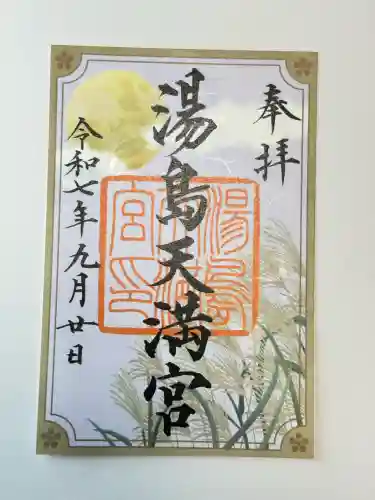 奉拝
湯島天満宮
令和七年九月廿日
湯島天満宮印